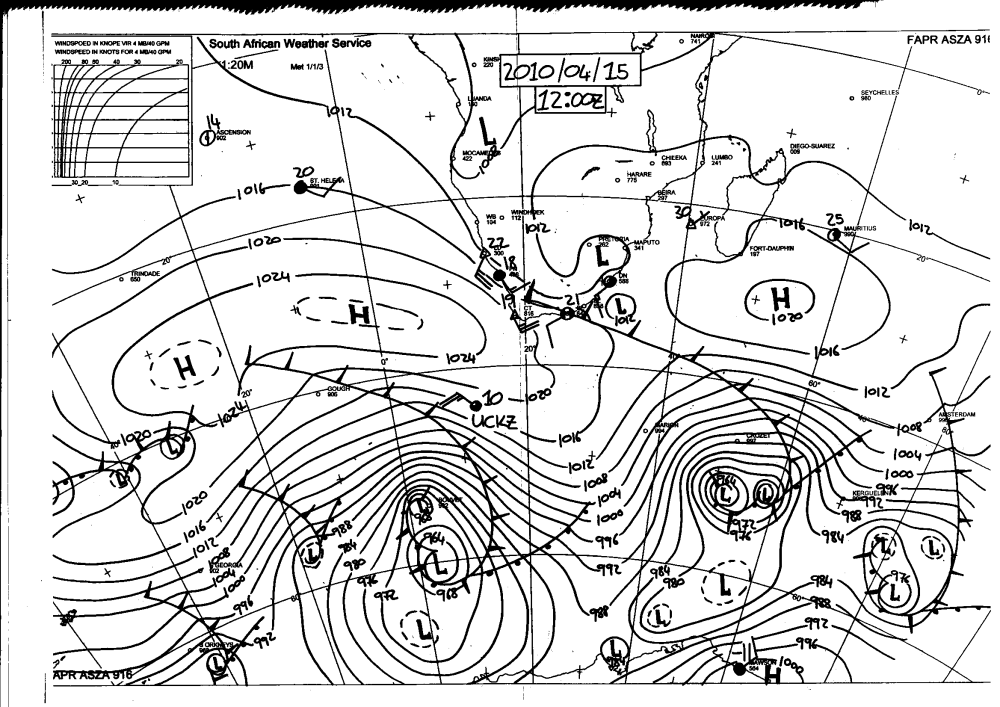 WINDSPOED IN KNOPE VIR 4 MB/40 GPM
WINDSPEED IN KNOTS FOR 4 MB/40 GPM
200 80 60 40 30 20
30 20 10
South African Weather Service
1:20M Met 1/1/3
FAPR ASZA 916
2010/04/15
12:00Z
NAIROBI
741
220
LUANDA
SEYCHELLES
980
0°
1012
14
ASCENSION
902
L
1008
MOCAMEDES
422
CHILEKA
693
LUMBO
241
DIEGO-SUAREZ
009
HARARE
775
20
ST. HELENA
1016
BEIRA
297
30
EUROPA
972
WB
104
WINDHOEK
112
1012
1016
25
MAURITIUS
990
1012
1020
22
300
PRETORIA
262
MAPUTO
341
L
FORT-DAUPHIN
197
20°
20°
TRINDADE
650
18
1024
DN
588
H
H
1020
19
CT
816
21
L
1012
H
1024
20°
1016
0°
20°
GOUGH
906
40°
60°
1012
1020
10
UCKZ
1024
1020
L
L
1016
MARION
994
CROZET
997
1008
AMSTERDAM
996
60°
1004
1012
1008
1004
1000
1000
996
992
988
984
KERGUELEN
BOUVET
992
968
964
L
964
L
L
972
976
1020
1016
1012
1008
1004
1000
996
992
988
984
980
976
972
968
L
L
L
996
992
988
984
980
L
L
984
988
992
996
1000
L
L
L
976
GEORGIA
902
60°
60°
S ORKNEYS
L
L
984
MAWSON
564
H
APR ASZA 916